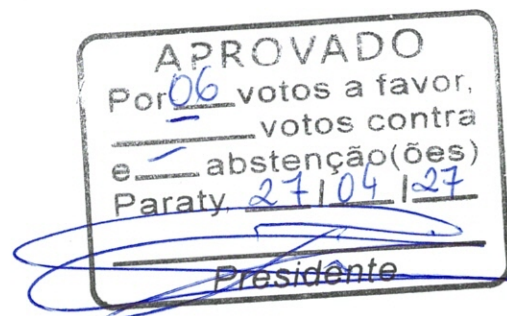 APROVADO
Por 06 votos a favor,
votos contra
e — abstenção(ões)
Paraty, 27/04/27
Presidente